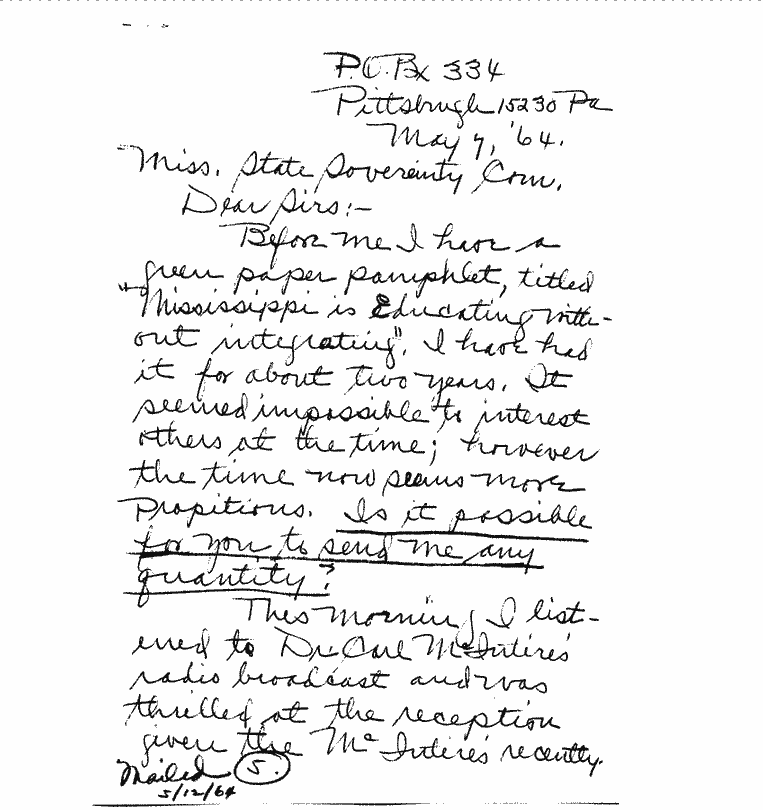 P.O. Bx 334
Pittsburgh 15230 Pa
May 7, '64.
Miss. State Sovereinty Com.
Dear Sirs:-
Before me I have a
green paper pamphlet, titled
"Mississippi is Educating with-
out integrating". I have had
it for about two years. It
seemed impossible to interest
others at the time; however
the time now seems more
Propitious. Is it possible
for you to send me any
quantity?
This morning I list-
ened to Dr. Carl McIntire's
radio broadcast and was
thrilled at the reception
given the McIntires recently.
Mailed 5.
5/12/64